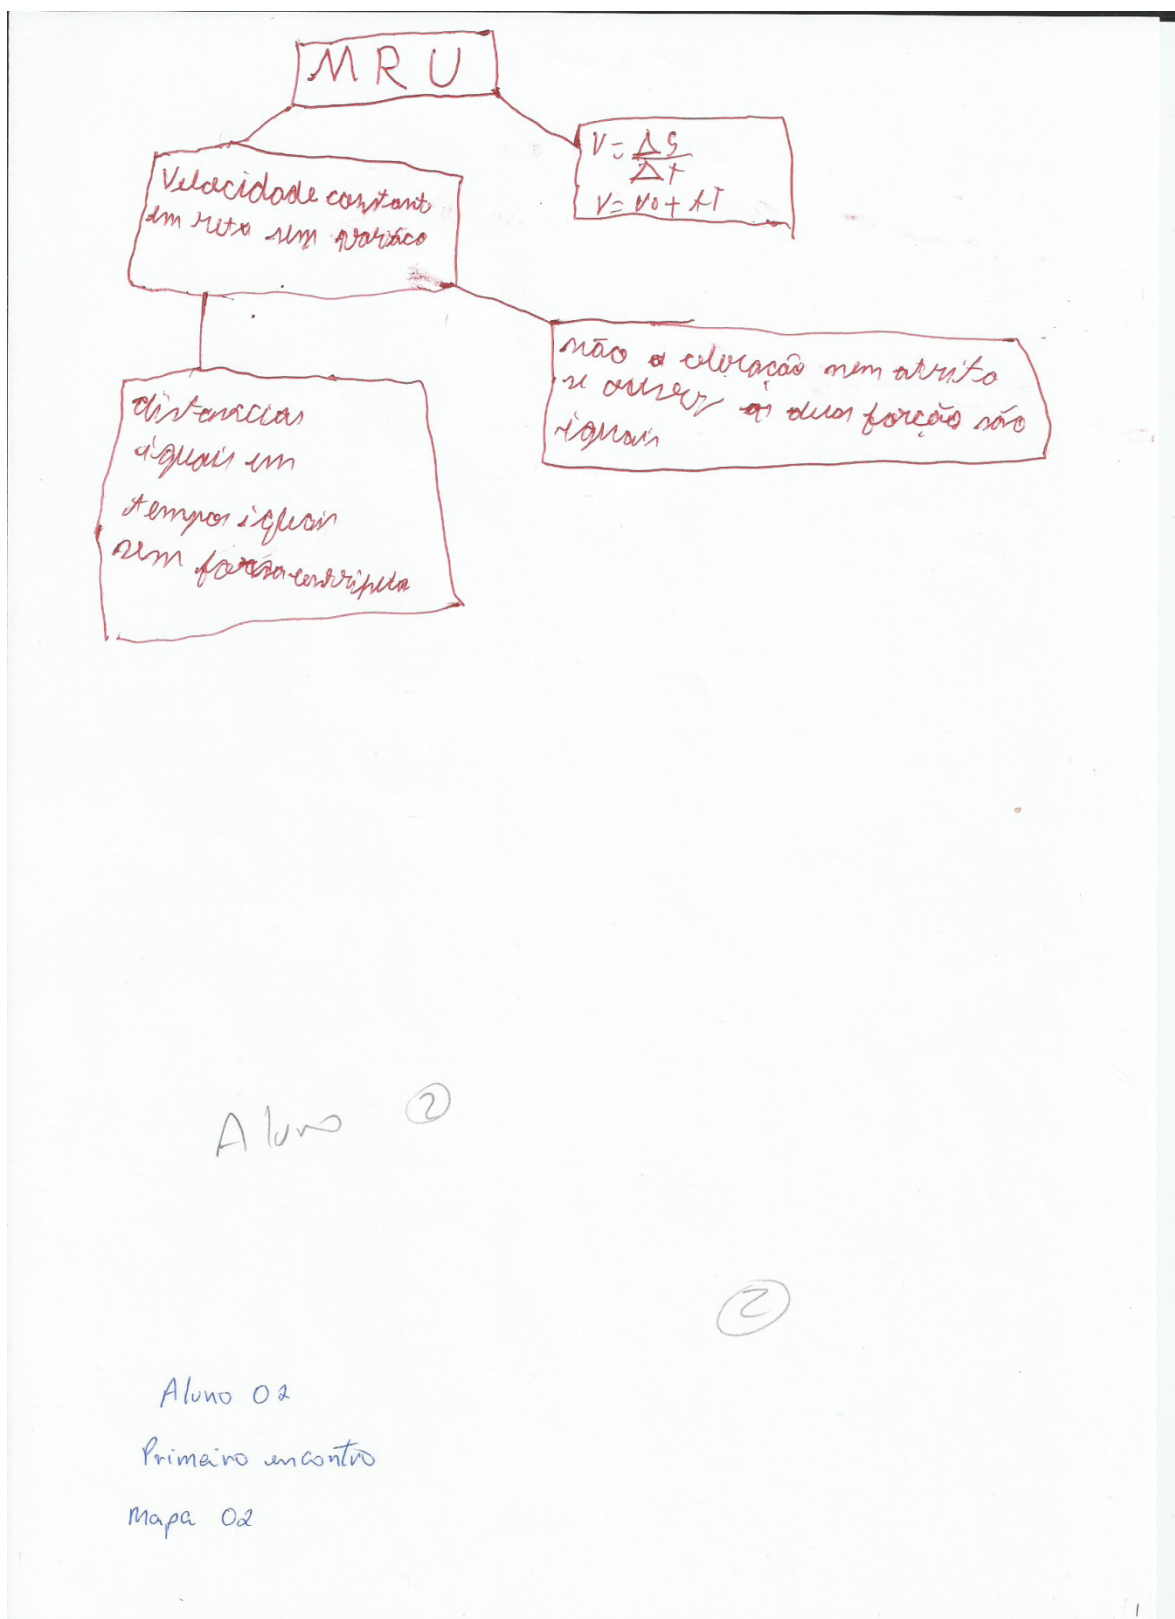 MRU
V = ΔS
Δt
V = V0 + AT
Velocidade constante
em reta sem variaco
não a aleração nem atrito
se ouser as duas forção são
iguais
distancias
iguais em
tempos iguais
sem força centripeta
Aluno 2
2
Aluno 02
Primeiro encontro
Mapa 02
1